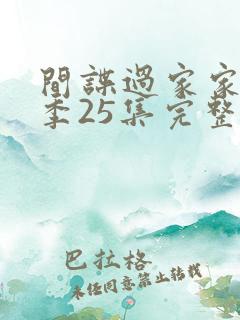 間諜過家家
季25集完整
巴拉格
未經同意禁止轉載